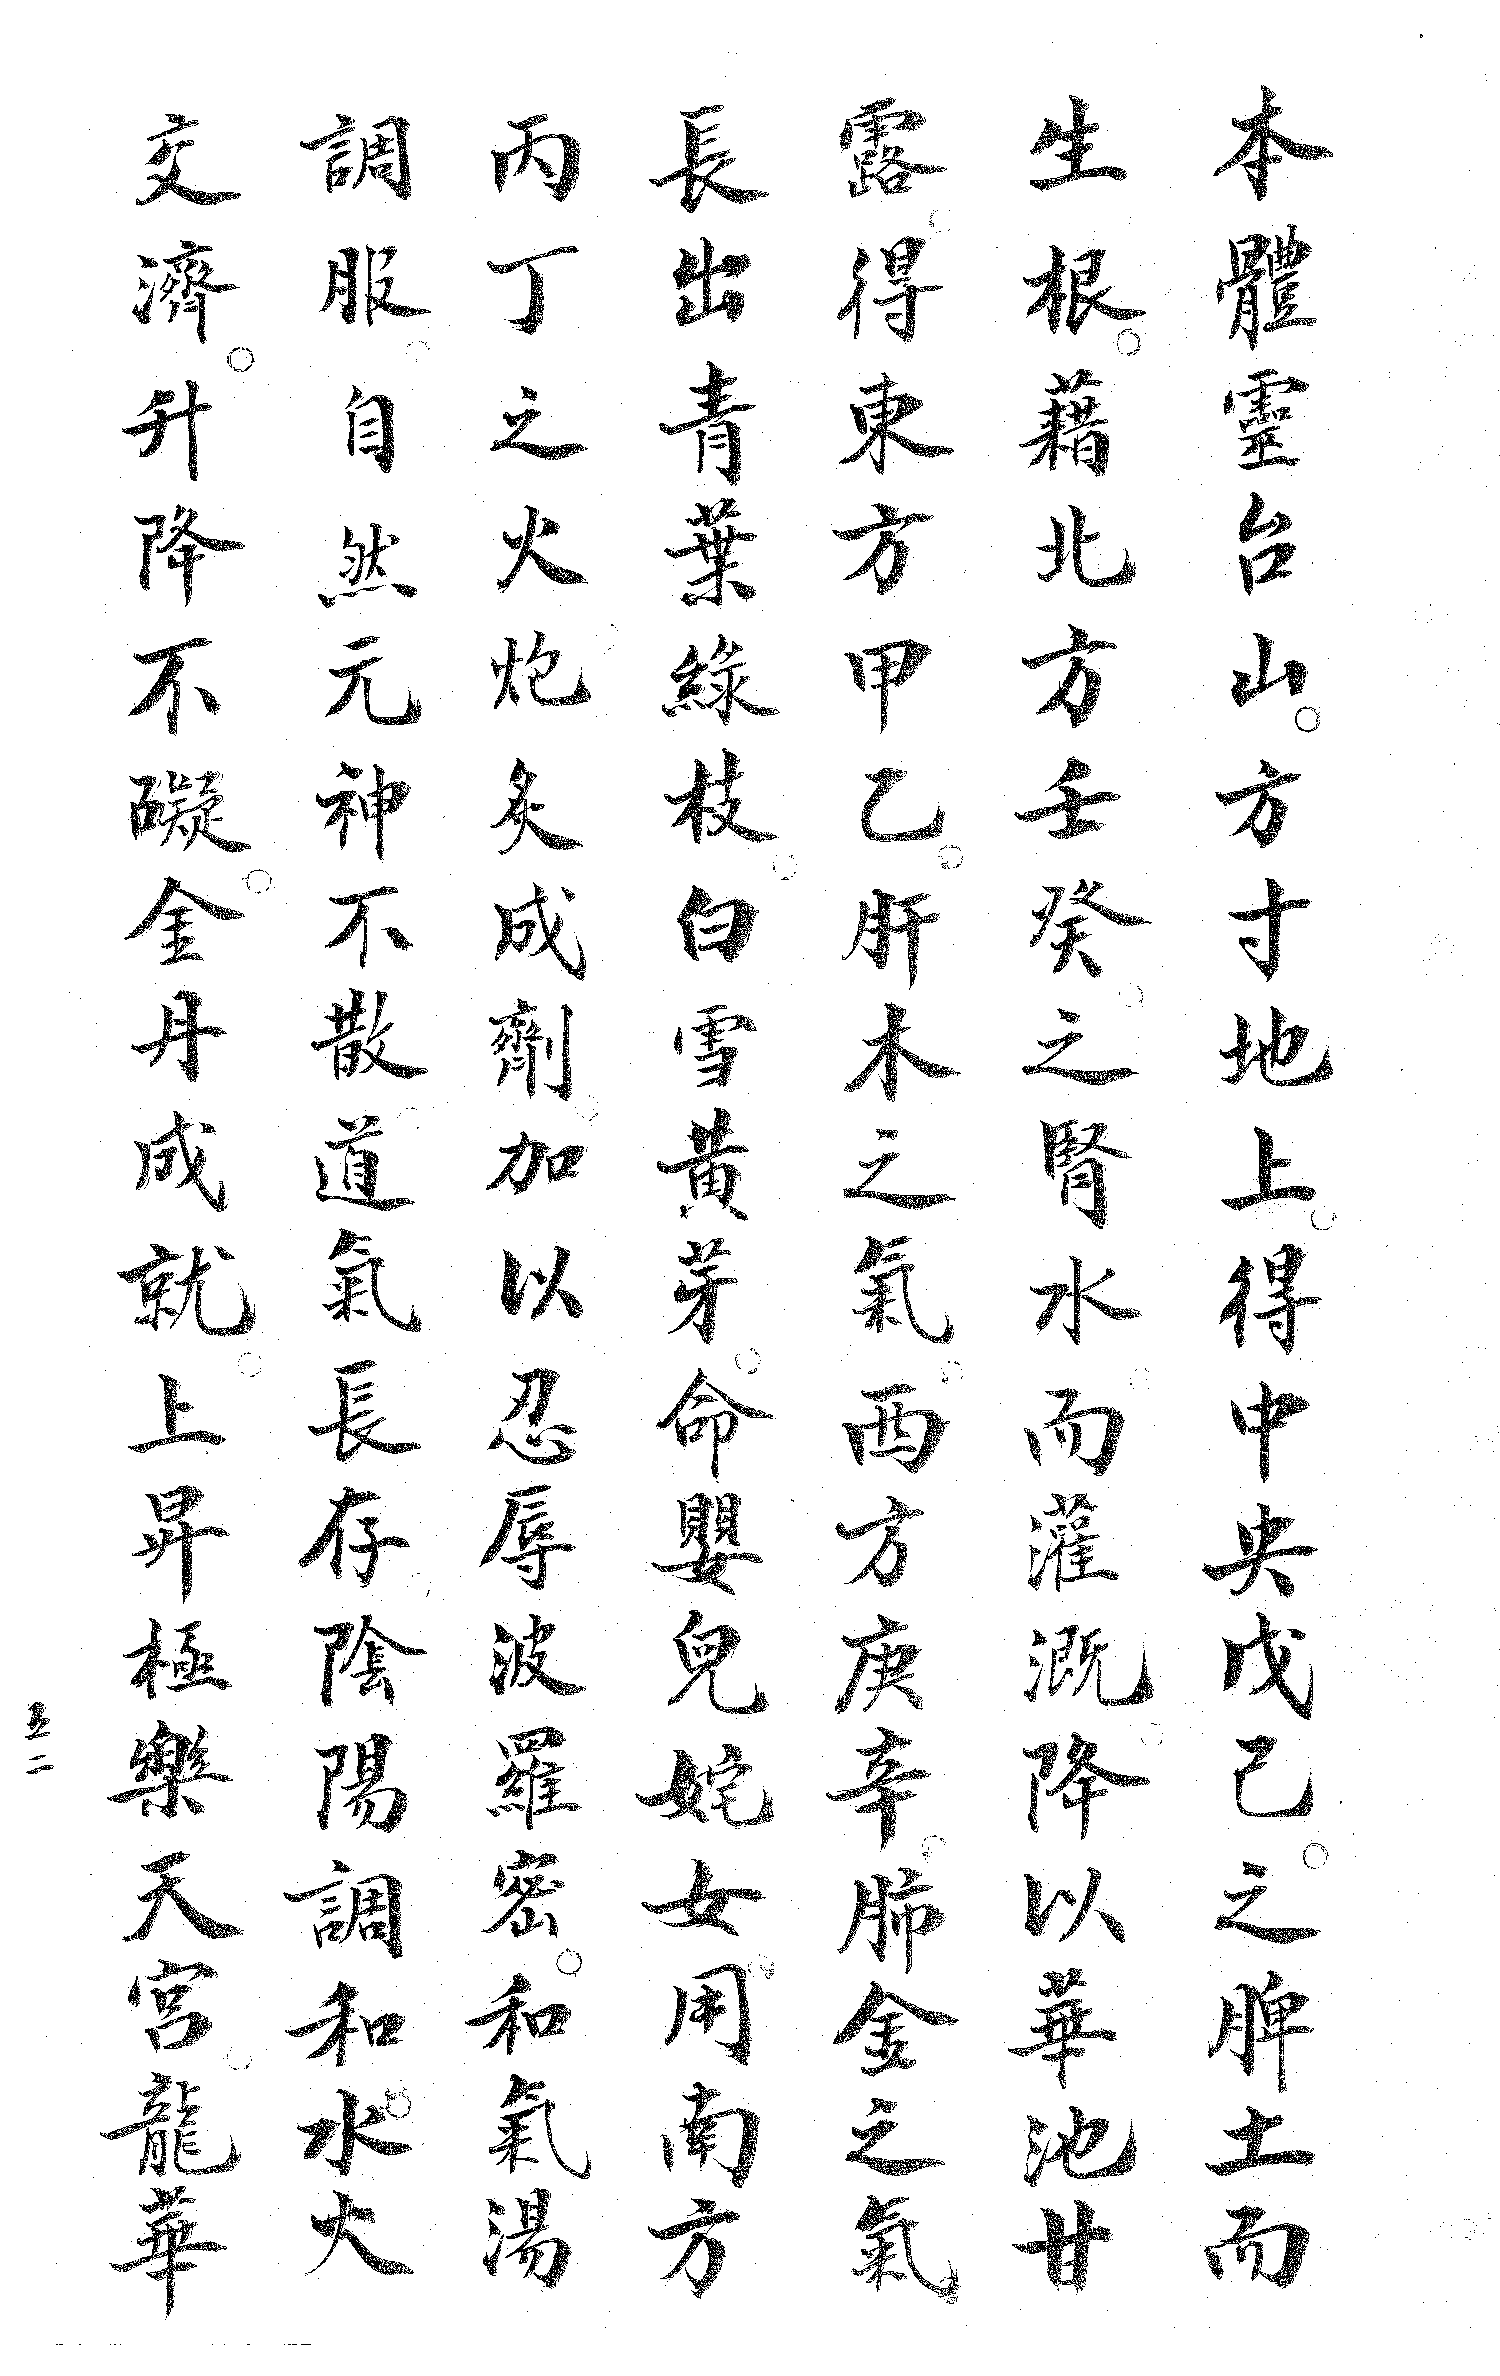 本體靈台山。方寸地上。得中央戊己。之脾土而
生根。藉北方壬癸。之腎水。而灌溉。降以華池甘
露。得東方甲乙。肝木之氣。酉方庚辛。肺金之氣。
長出青葉綠枝。白雪黃芽。命嬰兒姹女。用南方
丙丁之火。炮炙成劑。加以忍辱波羅密。和氣湯
調服。自然元神不散。道氣長存。陰陽調和。水火
交濟。升降不礙。金丹成就。上昇極樂天宮。龍華
五二